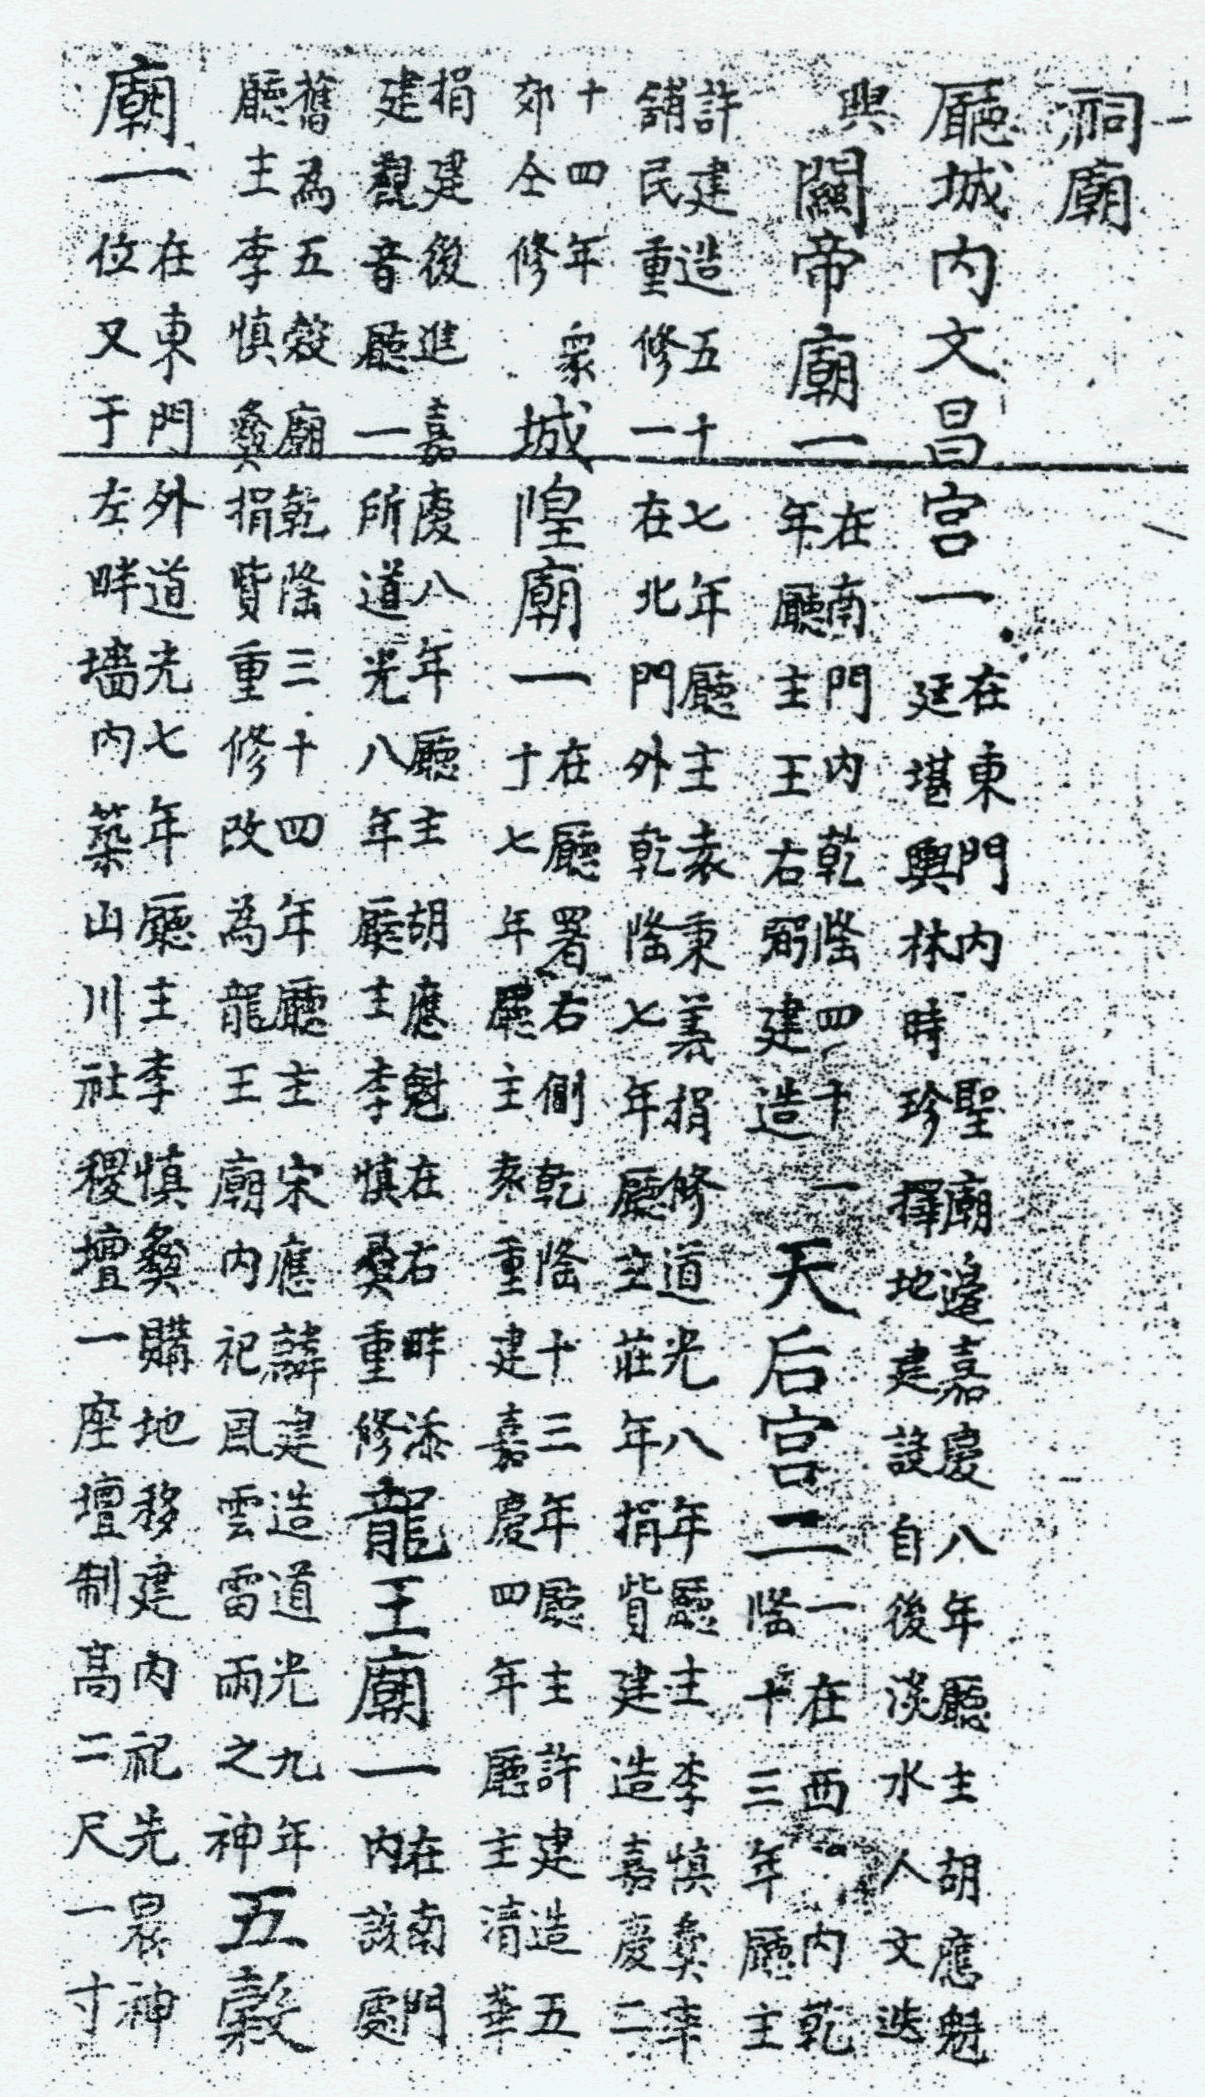 祠廟
廳城内文昌宮一 在東門内聖廟邉嘉慶八年廳主胡應魁
廷堪輿林時珍擇地建設自後淡水人文迭
興 關帝廟一 在南門内乾隆四十一
年廳主王右弼建造 天后宮二 一在西内乾
隆十三年廳主
許建造五十七年廳主袁秉義捐修道光八年廳主李慎彞率
舖民重修一在北門外乾隆七年廳主莊年捐貲建造嘉慶二
十四年衆
郊仝修 城隍廟一 在廳署右側乾隆十三年廳主許建造五
十七年廳主袁重建嘉慶四年廳主清華
捐建後進嘉慶八年廳主胡應魁在右畔添
建觀音廳一所道光八年廳主李慎彞重修 龍王廟一 在南門
内該處
舊為五穀廟乾隆三十四年廳主宋應麟建造道光九年
廳主李慎彞捐貲重修改為龍王廟内祀風雲雷雨之神 五穀
廟一 在東門外道光七年廳主李慎彞購地移建内祀先農神
位又于左畔墻内築山川社稷壇一座壇制高二尺一寸